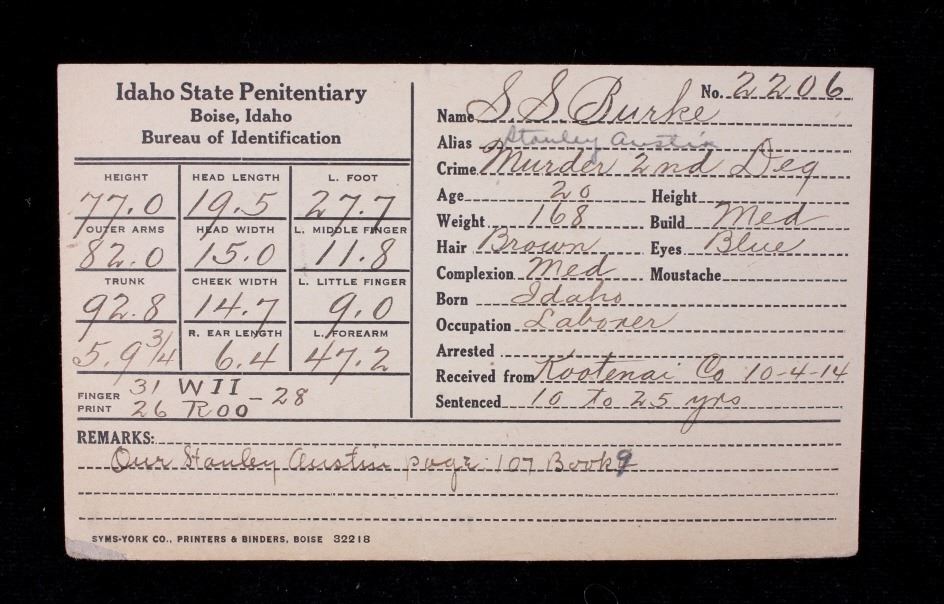 Idaho State Penitentiary
Boise, Idaho
Bureau of Identification
HEIGHT HEAD LENGTH L. FOOT
77.0 19.5 27.7
OUTER ARMS HEAD WIDTH L. MIDDLE FINGER
82.0 15.0 11.8
TRUNK CHEEK WIDTH L. LITTLE FINGER
92.8 14.7 9.0
R. EAR LENGTH L. FOREARM
5.9 3/4 6.4 47.2
FINGER PRINT 31 WII - 28
26 ROO
No. 2206
Name S. S. Burke
Alias Stanley Austin
Crime Murder 2nd Deg
Age 20 Height
Weight 168 Build Med
Hair Brown Eyes Blue
Complexion Med Moustache
Born Idaho
Occupation Laborer
Arrested
Received from Kootenai Co 10-4-14
Sentenced 10 to 25 yrs
REMARKS:
Our Stanley Austin page 107 Book 9
SYMS-YORK CO., PRINTERS & BINDERS, BOISE 32218